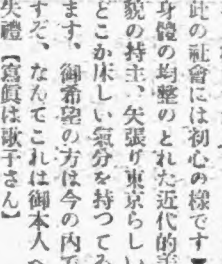 此の社會には初心の樣です
身體の均整のとれた近代的美
貌の持主、矢張り東京らしい
どこか床しい氣分を持つてゐ
ます、御希望の方は今の内で
すぞ、なんてこれは御本人へ
失禮【寫眞は歌子さん】